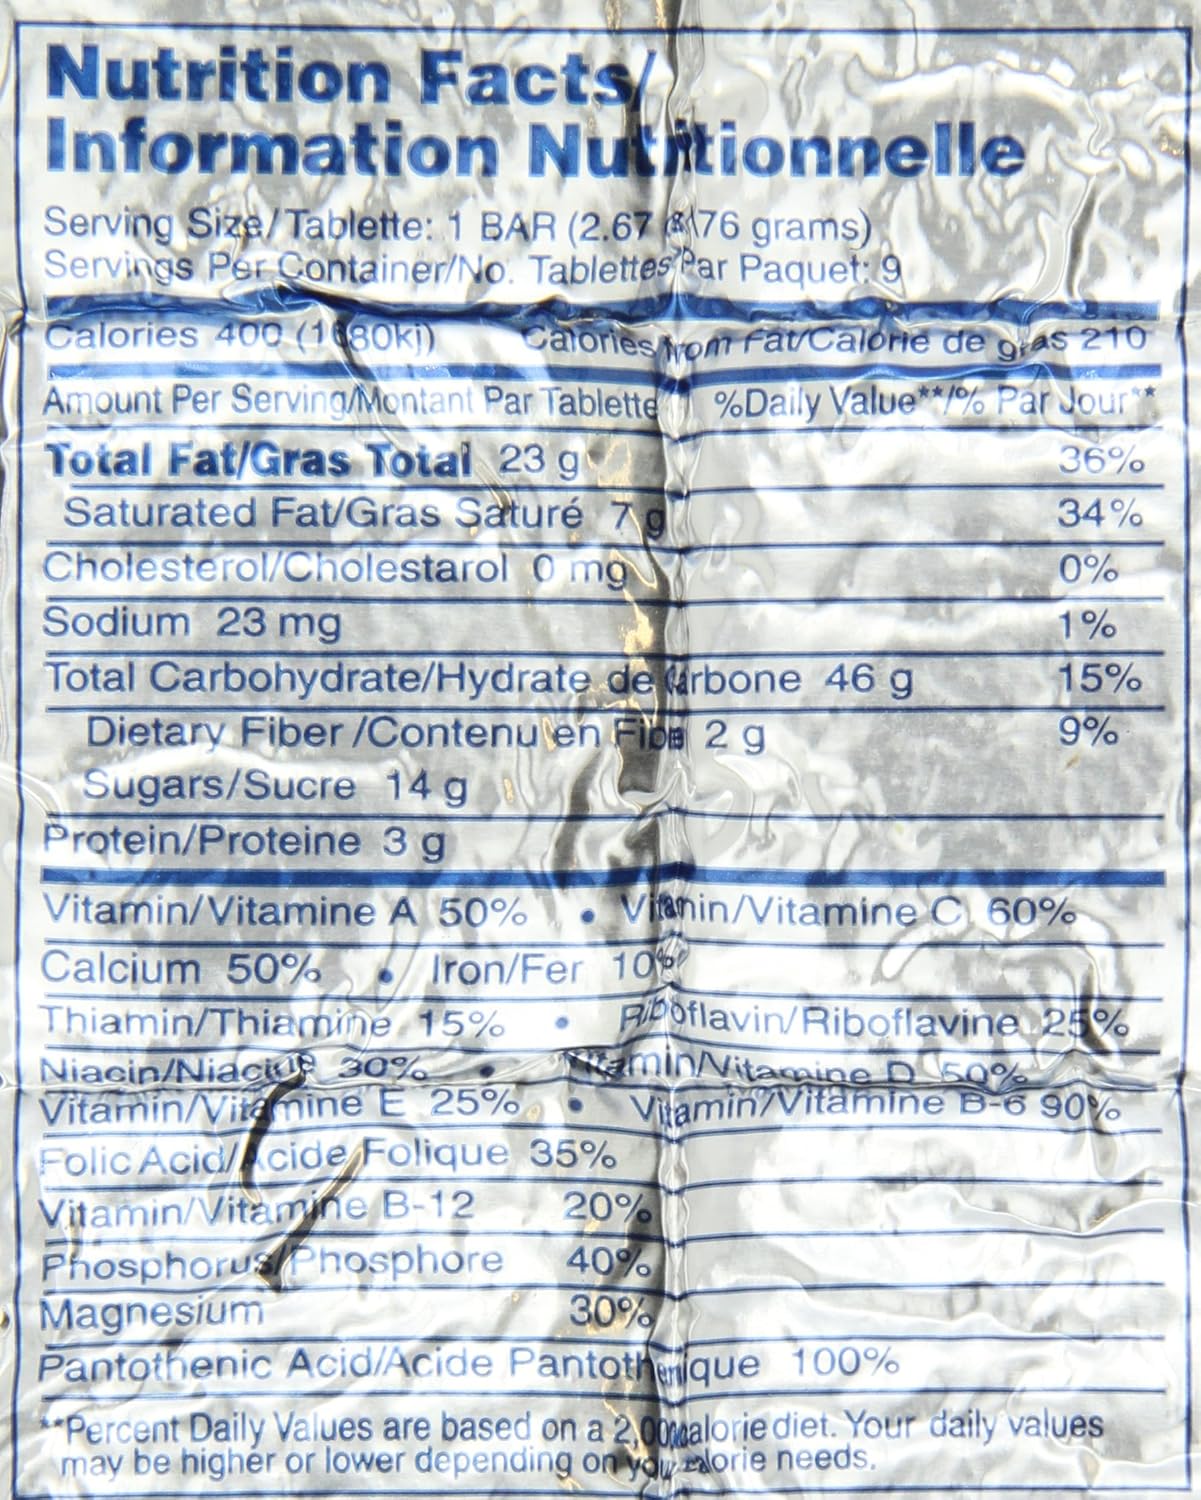 Nutrition Facts/
Information Nutritionnelle
Serving Size/Tablette: 1 BAR (2.67 76 grams)
Servings Per Container/No. Tablettes Par Paquet: 9
Calories 400 (1680kj) Calories from Fat/Calorie de gras 210
Amount Per Serving/Montant Par Tablette %Daily Value**/% Par Jour**
Total Fat/Gras Total 23 g 36%
Saturated Fat/Gras Saturé 7 g 34%
Cholesterol/Cholestarol 0 mg 0%
Sodium 23 mg 1%
Total Carbohydrate/Hydrate de Carbone 46 g 15%
Dietary Fiber /Contenu en 2 g 9%
Sugars/Sucre 14 g
Protein/Proteine 3 g
Vitamin/Vitamine A 50% • Vitamin/Vitamine C 60%
Calcium 50% • Iron/Fer 10%
Thiamin/Thiamine 15% • Riboflavin/Riboflavine 25%
Niacin/Niacine 30% • Vitamin/Vitamine D 50%
Vitamin/Vitamine E 25% • Vitamin/Vitamine B-6 90%
Folic Acid/Acide Folique 35%
Vitamin/Vitamine B-12 20%
Phosphorus/Phosphore 40%
Magnesium 30%
Pantothenic Acid/Acide Pantothenique 100%
**Percent Daily Values are based on a 2,000 calorie diet. Your daily values
may be higher or lower depending on your calorie needs.